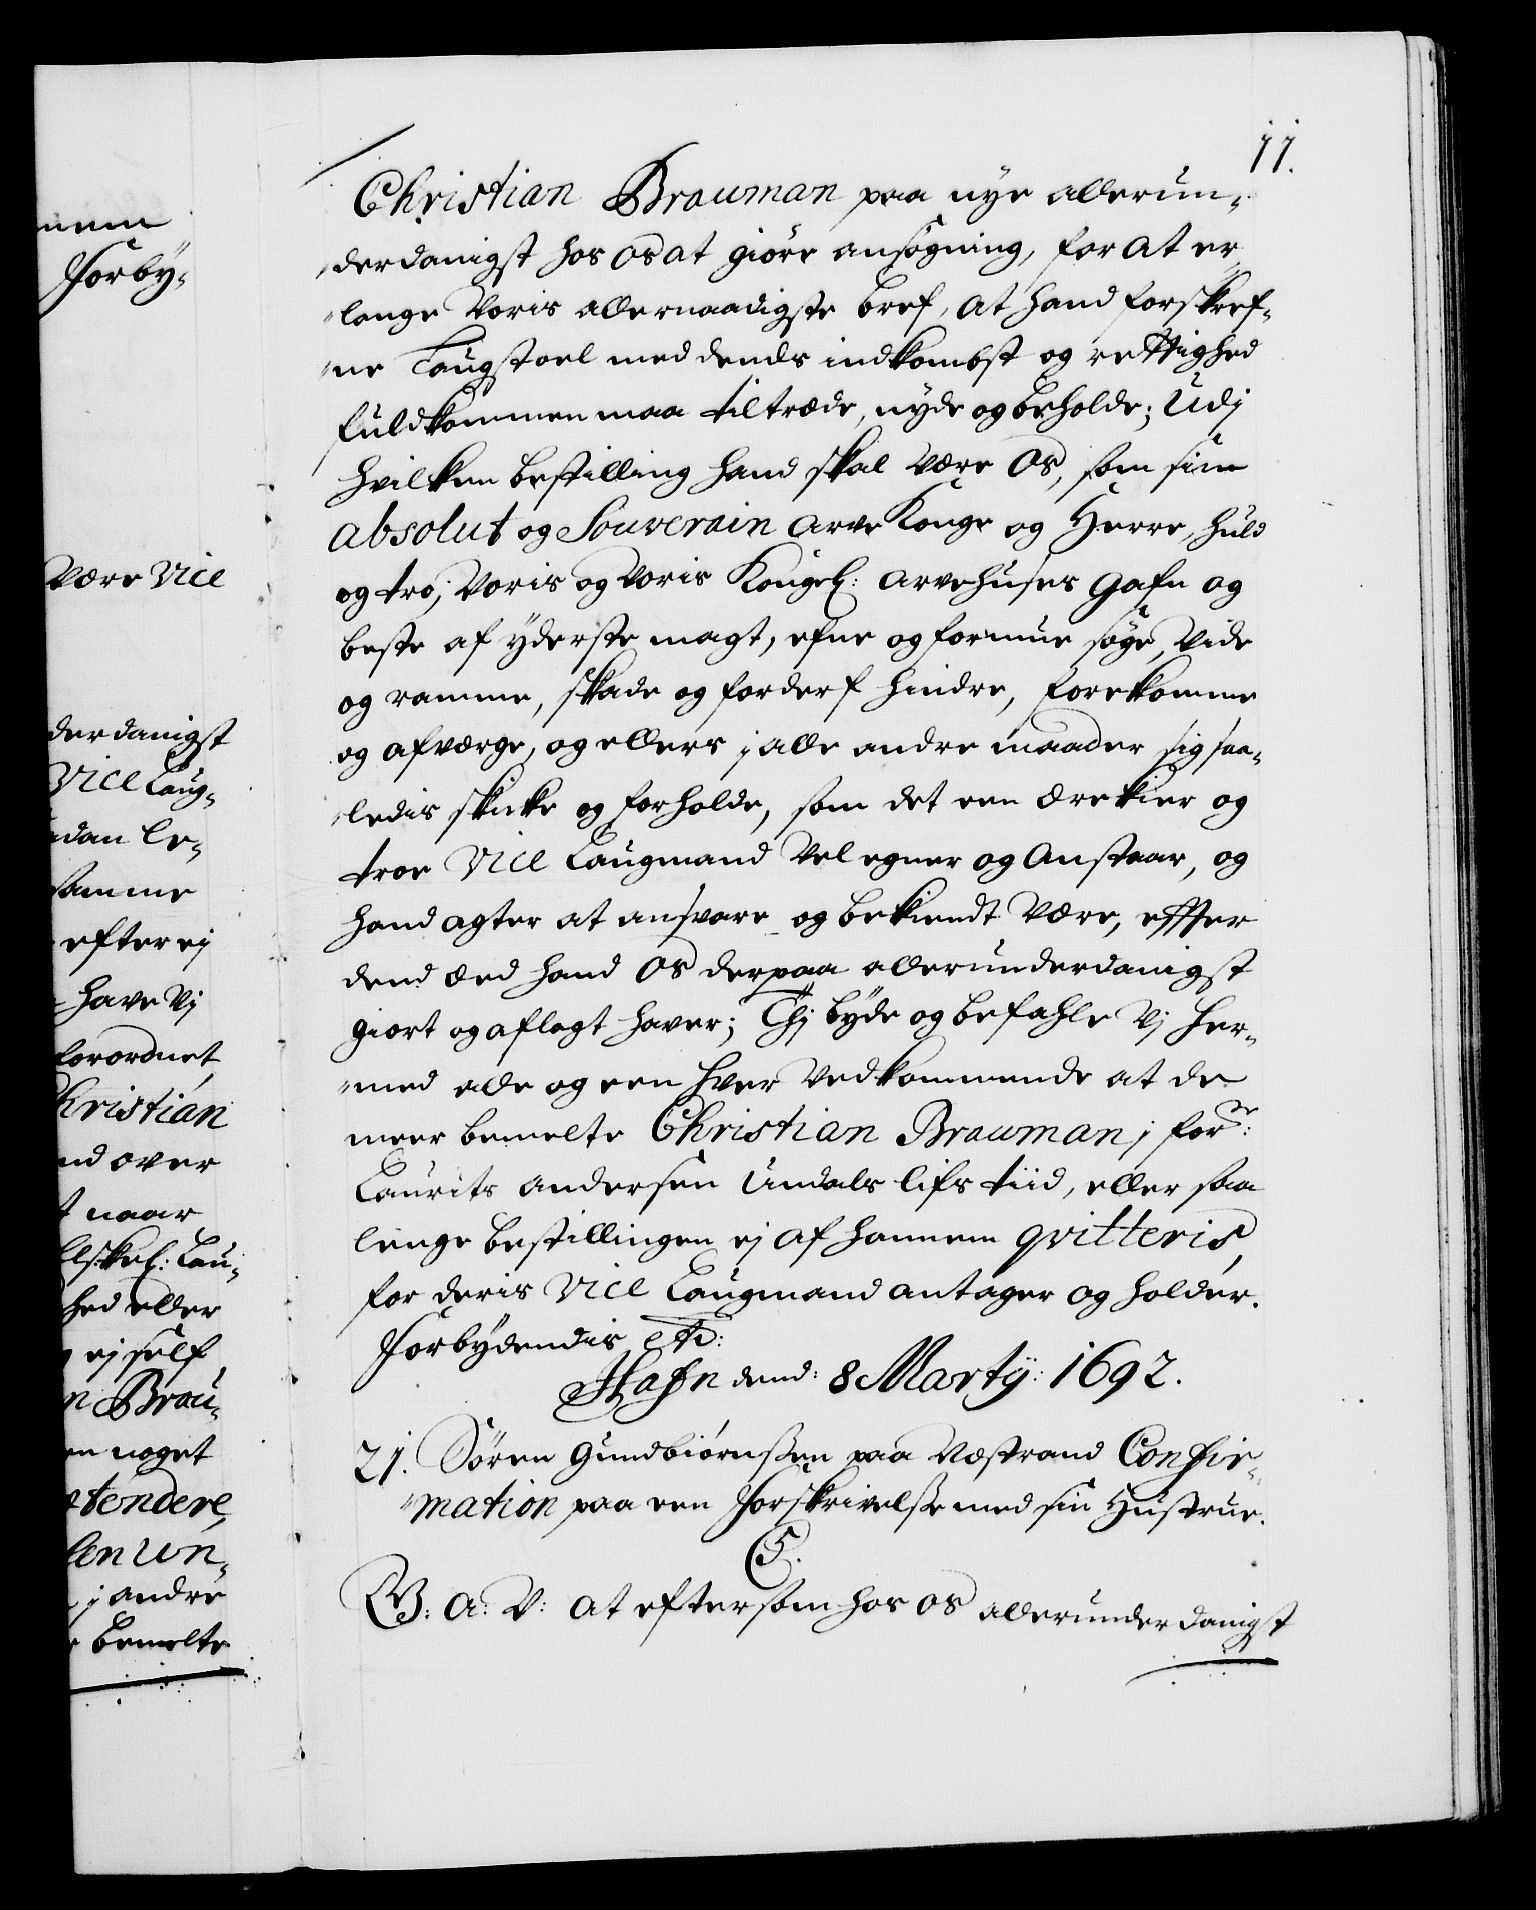 11.
Christian Brauman paa nye allerun-
derdanigst hos os at giøre ansøgning, for at er,
lange Voris allernaadigste bref, at hand forskref-
ne Laugstoel med dends indkombst og rettighed
fuldkommen maa tiltræde, nyde og beholde; Udj
hvilken bestilling hand skal være Os, som sin
absolut og Souverain arve Konge og Herre, huld
og tro, Voris og Voris Kongel: arvehuses gafn og
beste af yderste magt, efne og formue søge, Vide
og ramme, skade og forderf hindre, forekomme
og afværge, og ellers j alle andre maader sig saa-
ledis skicke og forholde, som det een ærekier og
troe Vice Laugmand Vel egner og Anstaar, og
hand agter at ansvare og bekiendt Være, effter
dend æed hand Os derpaa allerunderdanigst
giort og aflagt haver; Thj byde og befahle Vj her-
med alle og een hver Vedkommende at de
meer bemelte Christian Brauman j forne:
Laurits Andersøn Undals lifs tiid, eller saa
lenge bestillingen ej af hannem qvitteris,
for deris Vice Laugmand antager og holder.
Forbydendis etc:
Hafn dend: 8 Martij: 1692.
21. Søren Gundbiørnßen paa Vestrand Confir-
mation paa een Forskrivelße med sin Hustrue.
C5.
G: A: V: At eftersom hos os allerunderdanigst
nem
Forby-
Være Vice
derdanigst
Vice Laug-
adan le-
samme
efter ej
have Vj
forordnet
hristian
nd over
t naar
Elskel: Lau-
hed eller
ej self
n Brau-
en noget
tendere,
len un-
j andre
bemelte